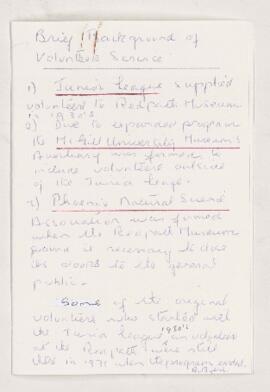 Brief Background of
Volunteer Service
1) Junior League supplied
volunteers to Redpath Museum
in 1930's
2) Due to expanded program
the McGill University Museums
Auxiliary was formed to
include volunteers outside
of the Junior League.
3) Phoenix Natural Science
Association was formed
when the Redpath Museum
found it necessary to close
its doors to the general
public.
Some of the original
volunteers who started with
the Junior League 1930's as volunteers
at the Redpath were still
there in 1971 when the program ended.